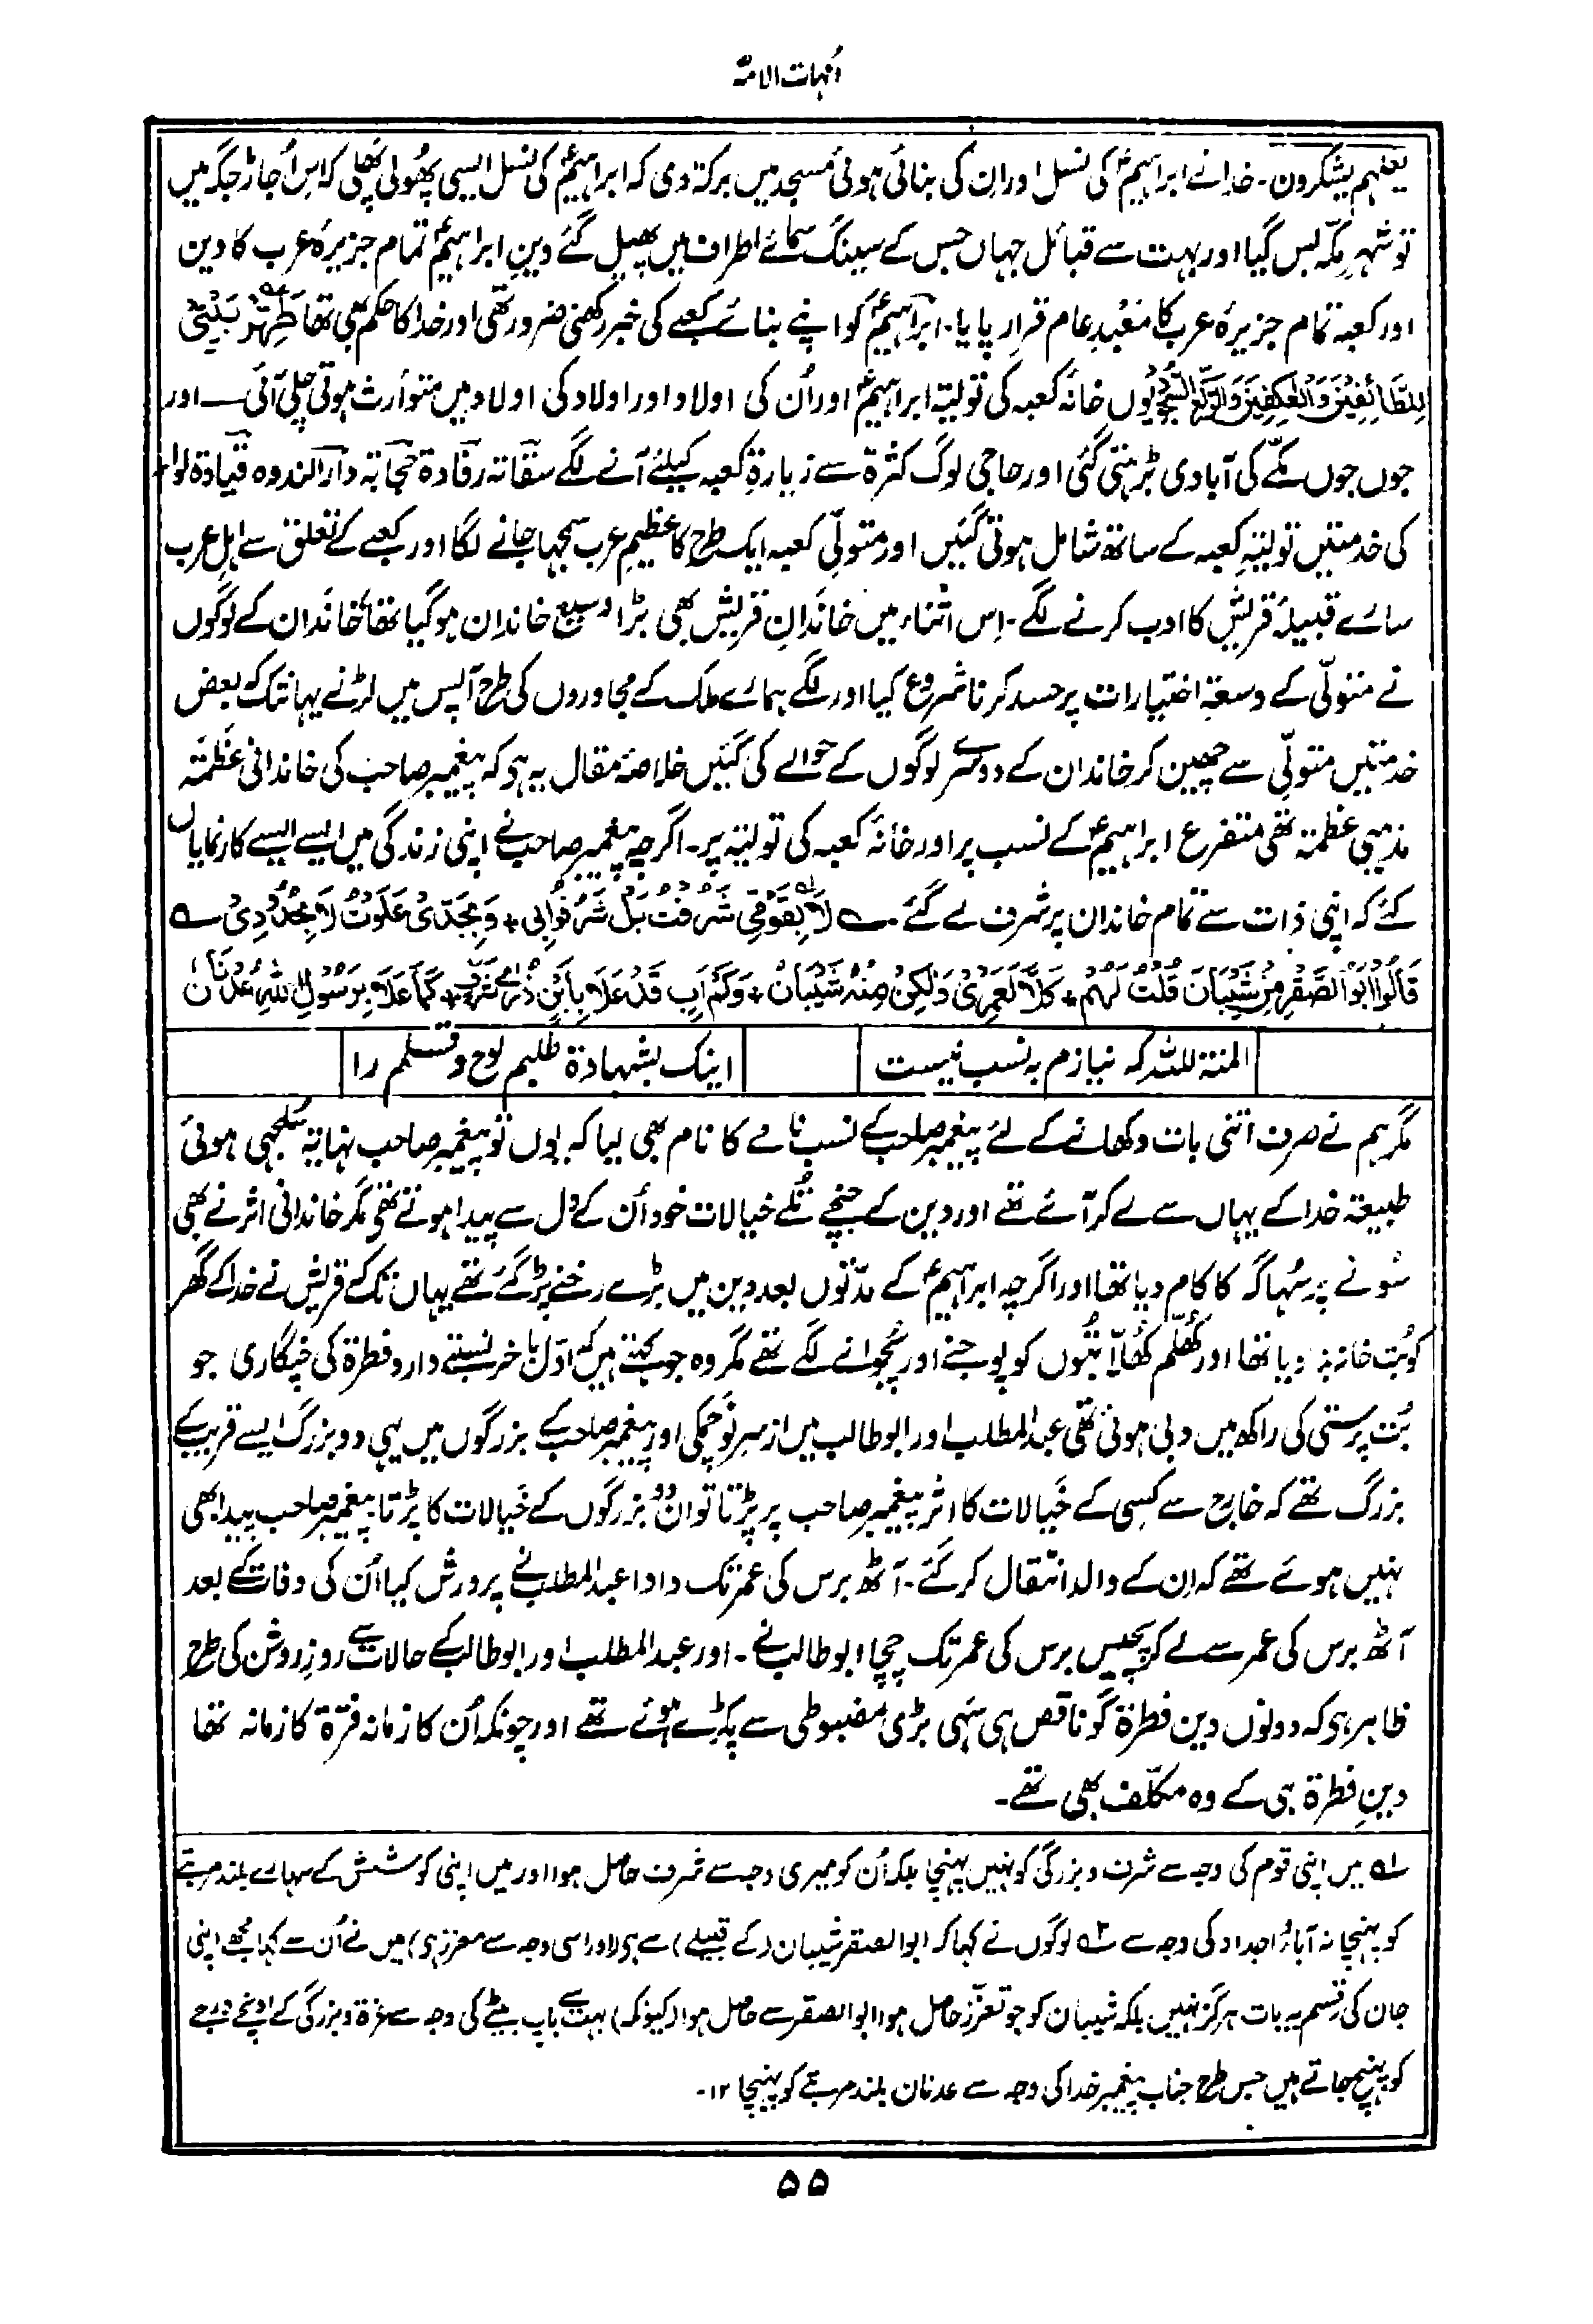 امہات الامۃ
یعلہم یشکرون۔ خدا نے ابراہیمؑ کی نسل اور ان کی بنائی ہوئی مسجد میں برکۃ دی کہ ابراہیمؑ کی نسل ایسی پھُولی پھَلی کہ اس اُجاڑ جگہ میں
تو شہرِ مکّہ بس گیا اور بہت سے قبائل جہاں جس کے سینگ سمائے اطراف میں پھیل گئے دینِ ابراہیمؑ تمام جزیرۂ عرب کا دین
اور کعبہ تمام جزیرۂ عرب کا مَعْبدِ عام قرار پایا۔ ابراہیمؑ کو اپنے بنائے کعبے کی خبر رکھنی ضرور تھی اور خدا کا حکم بھی تھا طَهِّرْ بَيْتِيَ
لِلطَّائِفِيْنَ وَالْعٰكِفِيْنَ وَالرُّكَّعِ السُّجُوْدِ یُوں خانۂ کعبہ کی تولیۃ ابراہیمؑ اور اُن کی اولاد اور اولاد کی اولاد میں متوارث ہوتی چلی آئی ــ اور
جوں جوں مکّے کی آبادی بڑہتی گئی اور حاجی لوگ کثرۃ سے زیارۃِ کعبہ کیلئے آنے لگے سقاتہ رفادۃ حجاتبہ دارالندوہ قیادۃ لواء
کی خدمتیں تولیتہِ کعبہ کے ساتھ شامل ہوتی گئیں اور متولّیِ کعبہ ایک طرح کا عظیمِ عرب سمجہا جانے لگا اور کعبے کے تعلق سے اہلِ عرب
سارے قبیلۂ قریش کا ادب کرنے لگے۔ اِس اثناء میں خاندانِ قریش بھی بڑا وسیع خاندان ہوگیا تھا خاندان کے لوگوں
نے متولّی کے وسعۃ اختیارات پر حسد کرنا شروع کیا اور لگے ہمارے ملک کے مجاوروں کی طرح آپس میں لڑنے یہانتک کہ بعض
خدمتیں متولّی سے چھین کر خاندان کے دوسرے لوگوں کے حوالے کی گئیں خلاصۂ مقال یہ ہی کہ پیغمبر صاحب کی خاندانی عظمۃ
مذہبی عظمۃ تھی متفرع ابراہیمؑ کے نسب پر اور خانۂ کعبہ کی تولیۃ پر۔ اگرچہ پیغمبر صاحب نے اپنی زندگی میں ایسے ایسے کار نمایاں
کئے کہ اپنی ذات سے تمام خاندان پر شرف لے گئے۔ ؎ لَا بِقَوْمِيْ شَرُفْتُ بَلْ شَرُفُوْا بِيْ + وَبِجَدِّيْ عَلَوْتُ لَا بِجُدُوْدِيْ ؎
قَالُوْا اَبُو الصَّقْرِ مِنْ شَيْبَانَ قُلْتُ لَهُمْ + كَلَّا لَعَمْرِيْ وَلٰكِنْ مِنْهُ شَيْبَانُ + وَكَمْ اَبٍ قَدْ عَلَا بِابْنٍ ذُرٰى شَرَفٍ + كَمَا عَلَا بِرَسُوْلِ اللهِ عَدْنَانُ
المنۃ للّٰہ کہ نیازم بہ نسب نیست    اینک بشہادۃ طلبیم لوح و قلم را
مگر ہم نے صرف اتنی بات دکھانے کے لئے پیغمبر صاحب کے نسب نامے کا نام بھی لیا کہ یوں تو پیغمبر صاحب نہایۃ سُلجہی ہوئی
طبیعۃ خدا کے یہاں سے لے کر آئے تھے اور دین کے جچے تُلے خیالات خود اُن کے دل سے پیدا ہوتے تھے مگر خاندانی اثر نے بھی
سونے پر سُہاگہ کا کام دیا تھا اور اگرچہ ابراہیمؑ کے مدّتوں بعد دین میں بڑے رخنے پڑگئے تھے یہاں تک کے قریش نے خدا کے گھر
کو بُت خانہ بنا دیا تھا اور کُھلّم کُھلّا بُتوں کو پوجنے اور پُجوانے لگے تھے مگر وہ جو کہتے ہیں کہ اوّل باٰخر نسبتے دارد فطرۃ کی چنگاری جو
بُت پرستی کی راکھ میں دبی ہوئی تھی عبدالمطلب اور ابوطالب میں ازسرِنَو چمکی اور پیغمبر صاحب کے بزرگوں میں یہی دو بزرگ ایسے قریب کے
بزرگ تھے کہ خارج سے کسی کے خیالات کا اثر پیغمبر صاحب پر پڑتا تو ان دو بزرگوں کے خیالات کا پڑتا پیغمبر صاحب پیدا بھی
نہیں ہوئے تھے کہ اِن کے والد انتقال کر گئے۔ آٹھ برس کی عمر تک دادا عبدالمطلب نے پرورش کیا اُن کی وفات کے بعد
آٹھ برس کی عمر سے لے کر پچیس برس کی عمر تک چچا ابوطالب نے۔ اور عبدالمطلب اور ابوطالب کے حالات سے روزِ روشن کی طرح
ظاہر ہی کہ دونوں دین فطرۃ گو ناقص ہی سہی بڑی مضبوطی سے پکڑے ہوئے تھے اور چونکہ اُن کا زمانہ فترۃ کا زمانہ تھا
دینِ فطرۃ ہی کے وہ مکلّف بھی تھے۔
؎۱ میں اپنی قوم کی وجہ سے شرف و بزرگی کو نہیں پہنچا بلکہ اُن کو میری وجہ سے شرف حاصل ہوا اور میں اپنی کوشش کے سہارے بلند مرتبے
کو پہنچا نہ آباؤ اجداد کی وجہ سے ؎۲ لوگوں نے کہا کہ ابوالصقر شیبان (کے قبیلے) سے ہی (اور اسی وجہ سے معزز ہی) میں نے اُن سے کہا مجھے اپنی
جان کی قسم یہ بات ہرگز نہیں بلکہ شیبان کو جو تعزّز حاصل ہوا ابوالصقر سے حاصل ہوا (کیونکہ) بہت سے باپ بیٹے کی وجہ سے عزۃ و بزرگی کے اونچے درجے
کو پہنچ جاتے ہیں جس طرح جناب پیغمبر خدا کی وجہ سے عدنان بلند مرتبے کو پہنچا ۱۲۔
۵۵